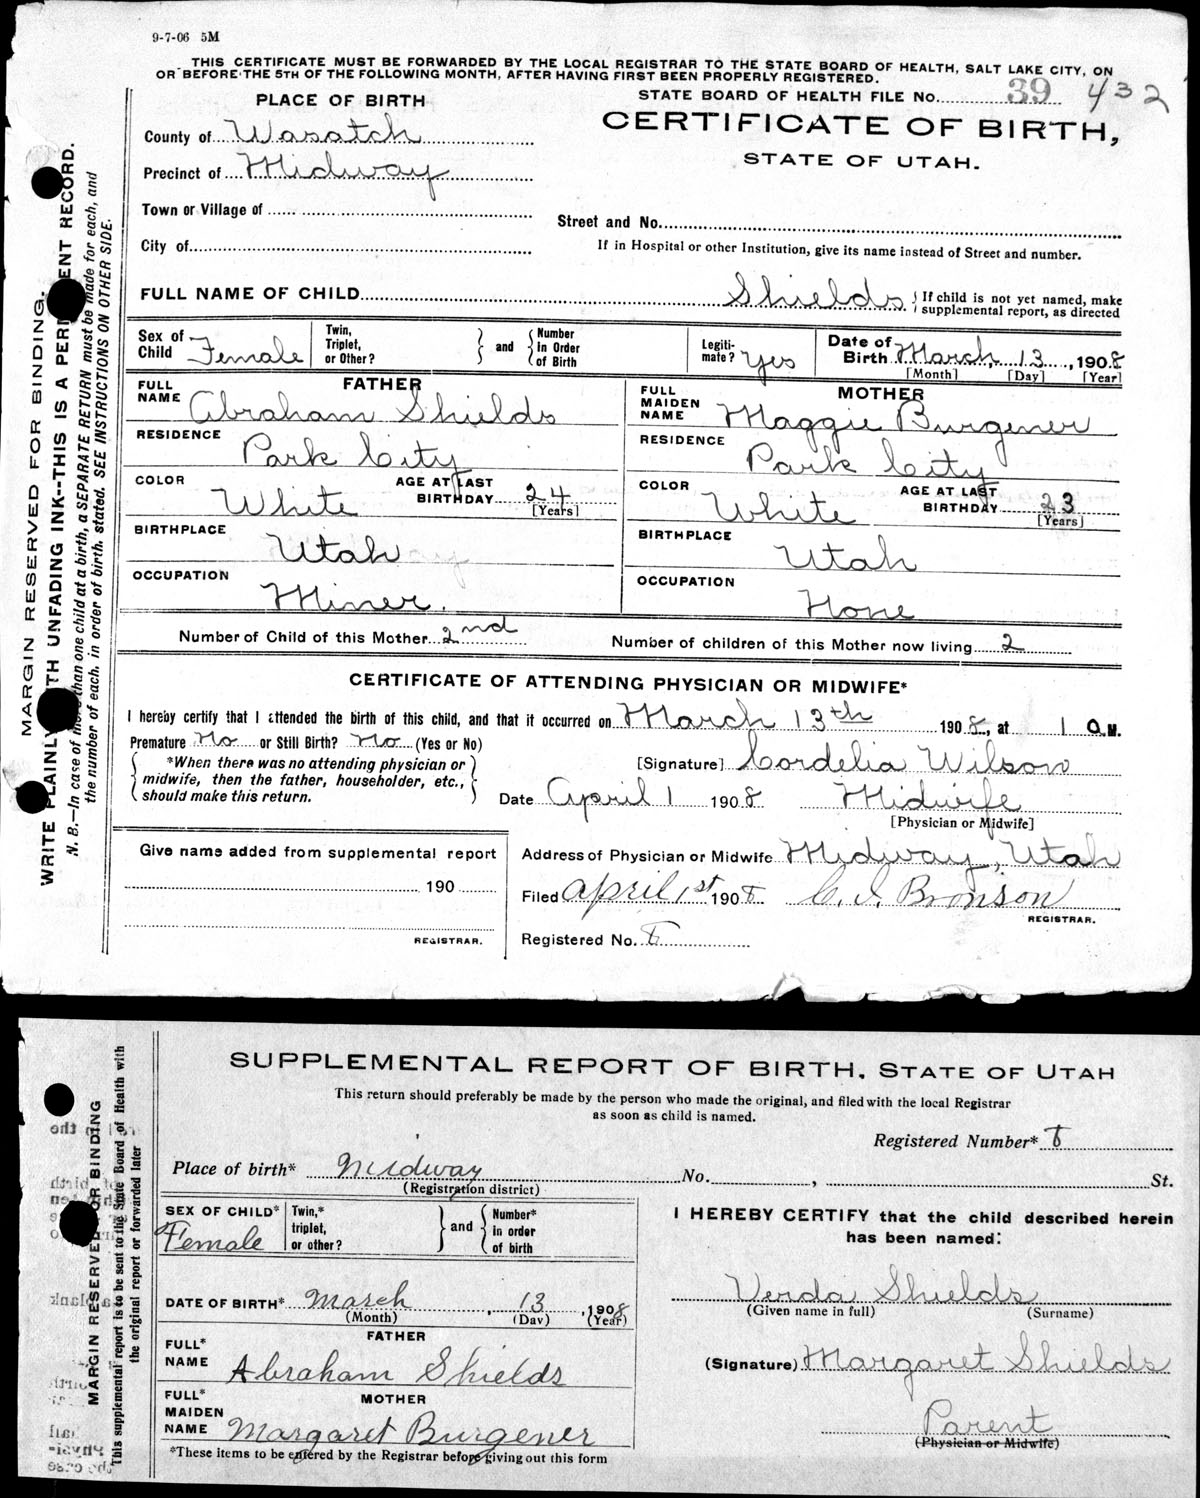 9-7-06 5M
THIS CERTIFICATE MUST BE FORWARDED BY THE LOCAL REGISTRAR TO THE STATE BOARD OF HEALTH, SALT LAKE CITY, ON
OR BEFORE THE 5TH OF THE FOLLOWING MONTH, AFTER HAVING FIRST BEEN PROPERLY REGISTERED.
STATE BOARD OF HEALTH FILE No. 39 432
PLACE OF BIRTH
CERTIFICATE OF BIRTH,
STATE OF UTAH.
County of Wasatch
Precinct of Midway
Town or Village of
Street and No.
City of
If in Hospital or other Institution, give its name instead of Street and number.
FULL NAME OF CHILD Shields { If child is not yet named, make
supplemental report, as directed
Sex of Child Female
Twin, Triplet, or Other?
and
Number in Order of Birth
Legiti-mate? Yes
Date of Birth March 13, 1908
[Month] [Day] [Year]
FATHER
FULL NAME Abraham Shields
RESIDENCE Park City
COLOR White
AGE AT LAST BIRTHDAY 24
[Years]
BIRTHPLACE Utah
OCCUPATION Miner.
MOTHER
FULL MAIDEN NAME Maggie Burgener
RESIDENCE Park City
COLOR White
AGE AT LAST BIRTHDAY 23
[Years]
BIRTHPLACE Utah
OCCUPATION None
Number of Child of this Mother 2nd
Number of children of this Mother now living 2
CERTIFICATE OF ATTENDING PHYSICIAN OR MIDWIFE*
I hereby certify that I attended the birth of this child, and that it occurred on March 13th 1908, at 1 a.M.
Premature No or Still Birth? No (Yes or No)
*When there was no attending physician or
midwife, then the father, householder, etc.,
should make this return.
[Signature] Cordelia Wilson
Date April 1 1908 Midwife
[Physician or Midwife]
Give name added from supplemental report
190
REGISTRAR.
Address of Physician or Midwife Midway, Utah
Filed April 1st 1908 C. I. Bronson
REGISTRAR.
Registered No. 8
MARGIN RESERVED FOR BINDING.
WRITE PLAINLY WITH UNFADING INK--THIS IS A PERMANENT RECORD.
N. B.—In case of more than one child at a birth, a SEPARATE RETURN must be made for each, and
the number of each, in order of birth, stated. SEE INSTRUCTIONS ON OTHER SIDE.
SUPPLEMENTAL REPORT OF BIRTH, STATE OF UTAH
This return should preferably be made by the person who made the original, and filed with the local Registrar
as soon as child is named.
Registered Number* 8
Place of birth* Midway No. , St.
(Registration district)
SEX OF CHILD* Female
Twin,* triplet, or other?
and
Number* in order of birth
DATE OF BIRTH* March, 13, 1908
(Month) (Day) (Year)
FATHER
FULL* NAME Abraham Shields
MOTHER
FULL* MAIDEN NAME Margaret Burgener
*These items to be entered by the Registrar before giving out this form
I HEREBY CERTIFY that the child described herein
has been named:
Verda Shields
(Given name in full) (Surname)
(Signature) Margaret Shields
Parent
(Physician or Midwife)
MARGIN RESERVED FOR BINDING
This supplemental report is to be sent to the State Board of Health with
the original report or forwarded later